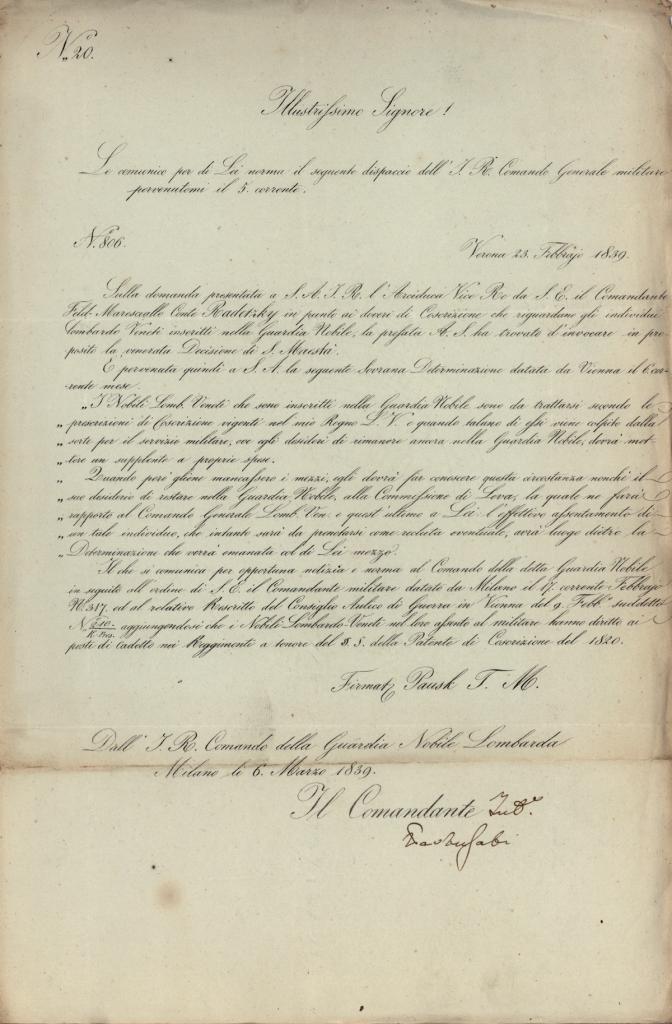 N.° 20.
Illustrissimo Signore!
Le comunico per di Lei norma il seguente dispaccio dell' I. R. Comando Generale militare
pervenutomi il 5. corrente.
N.° 806.
Verona 23. Febbrajo 1839.
Sulla domanda presentata a S. A. I. R. l'Arciduca Vice Re da S. E. il Comandante
Feld-Maresciallo Conte Radetzky in punto ai doveri di Coscrizione che riguardano gli individui
Lombardo Veneti inscritti nella Guardia Nobile, la prefata A. S. ha trovato d'invocare in pro-
posito la venerata Decisione di S. Maestà.
È pervenuta quindi a S. A. la seguente Sovrana Determinazione datata da Vienna il 6. cor-
rente mese.
„I Nobili Lomb. Veneti che sono inscritti nella Guardia Nobile sono da trattarsi secondo le
„ prescrizioni di Coscrizione vigenti nel mio Regno L. V. e quando taluno di essi viene colpito dalla
„ sorte per il servizio militare, ove egli desideri di rimanere ancora nella Guardia Nobile, dovrà met-
„ tere un supplente a proprie spese.
„ Quando però gliene mancassero i mezzi, egli dovrà far conoscere questa circostanza nonchè il
„ suo desiderio di restare nella Guardia Nobile, alla Commissione di Leva, la quale ne farà
„ rapporto al Comando Generale Lomb. Ven. e quest'ultimo a Lei: l'effettivo assentamento di
„ un tale individuo, che intanto sarà da prenotarsi come recluta eventuale, avrà luogo dietro la
„ Determinazione che verrà emanata col di Lei mezzo.
Il che si comunica per opportuna notizia e norma al Comando della detta Guardia Nobile
in seguito all'ordine di S. E. il Comandante militare datato da Milano il 17. corrente Febbrajo
N.° 317. ed al relativo Rescritto del Consiglio Aulico di Guerra in Vienna del 9. Febb.° suddetto
N. 210. K. Pres. aggiungendosi che i Nobili Lombardo-Veneti nel loro assento al militare hanno diritto ai
posti di Cadetto nei Reggimenti a tenore del §. 5. della Patente di Coscrizione del 1820.
Firmat. Pausk T. M.
Dall' I. R. Comando della Guardia Nobile Lombarda
Milano li 6. Marzo 1839.
Il Comandante